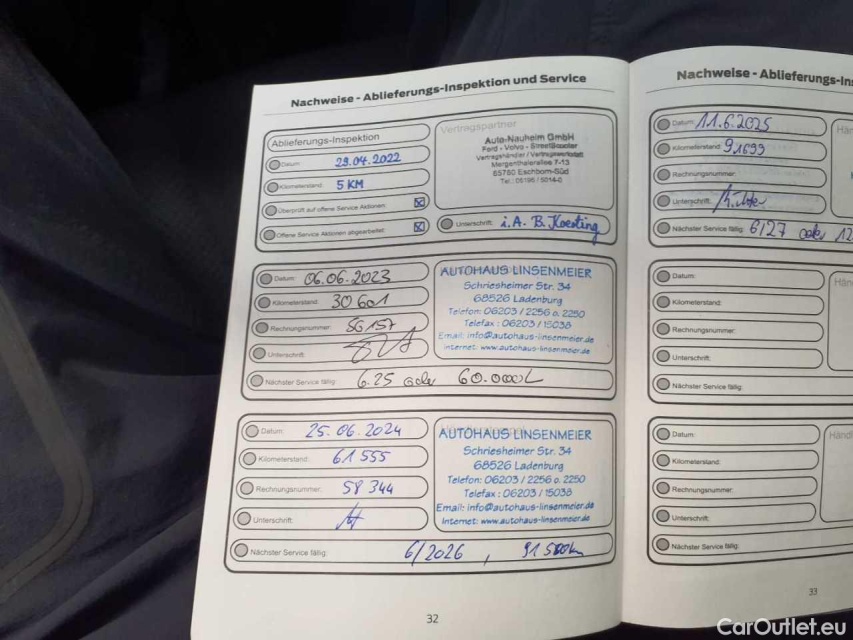 Nachweise - Ablieferungs-Inspektion und Service
Ablieferungs-Inspektion
Datum: 29.04.2022
Kilometerstand: 5 KM
Überprüft auf offene Service Aktionen:
Offene Service Aktionen abgearbeitet:
Vertragspartner
Auto-Nauheim GmbH
Ford - Volvo - StreetScooter
Vertragshändler / Vertragswerkstatt
Mergenthalerallee 7-13
65760 Eschborn-Süd
Tel.: 06196 / 5014-0
Unterschrift: i.A. B. Koesting
Datum: 06.06.2023
Kilometerstand: 30601
Rechnungsnummer: 56157
Unterschrift:
Nächster Service fällig: 6.25 oder 60.000
AUTOHAUS LINSENMEIER
Schriesheimer Str. 34
68526 Ladenburg
Telefon: 06203 / 2256 o. 2250
Telefax : 06203 / 15038
Email: info@autohaus-linsenmeier.de
Internet: www.autohaus-linsenmeier.de
Datum: 25.06.2024
Kilometerstand: 61555
Rechnungsnummer: 58344
Unterschrift:
Nächster Service fällig: 6/2026, 91500km
AUTOHAUS LINSENMEIER
Schriesheimer Str. 34
68526 Ladenburg
Telefon: 06203 / 2256 o. 2250
Telefax : 06203 / 15038
Email: info@autohaus-linsenmeier.de
Internet: www.autohaus-linsenmeier.de
32
Nachweise - Ablieferungs-In
Datum: 11.6.2025
Kilometerstand: 91693
Rechnungsnummer:
Unterschrift:
Nächster Service fällig: 6/27 oder 12
Hän
Datum:
Kilometerstand:
Rechnungsnummer:
Unterschrift:
Nächster Service fällig:
Hän
Datum:
Kilometerstand:
Rechnungsnummer:
Unterschrift:
Nächster Service fällig:
Händl
33
CarOutlet.eu